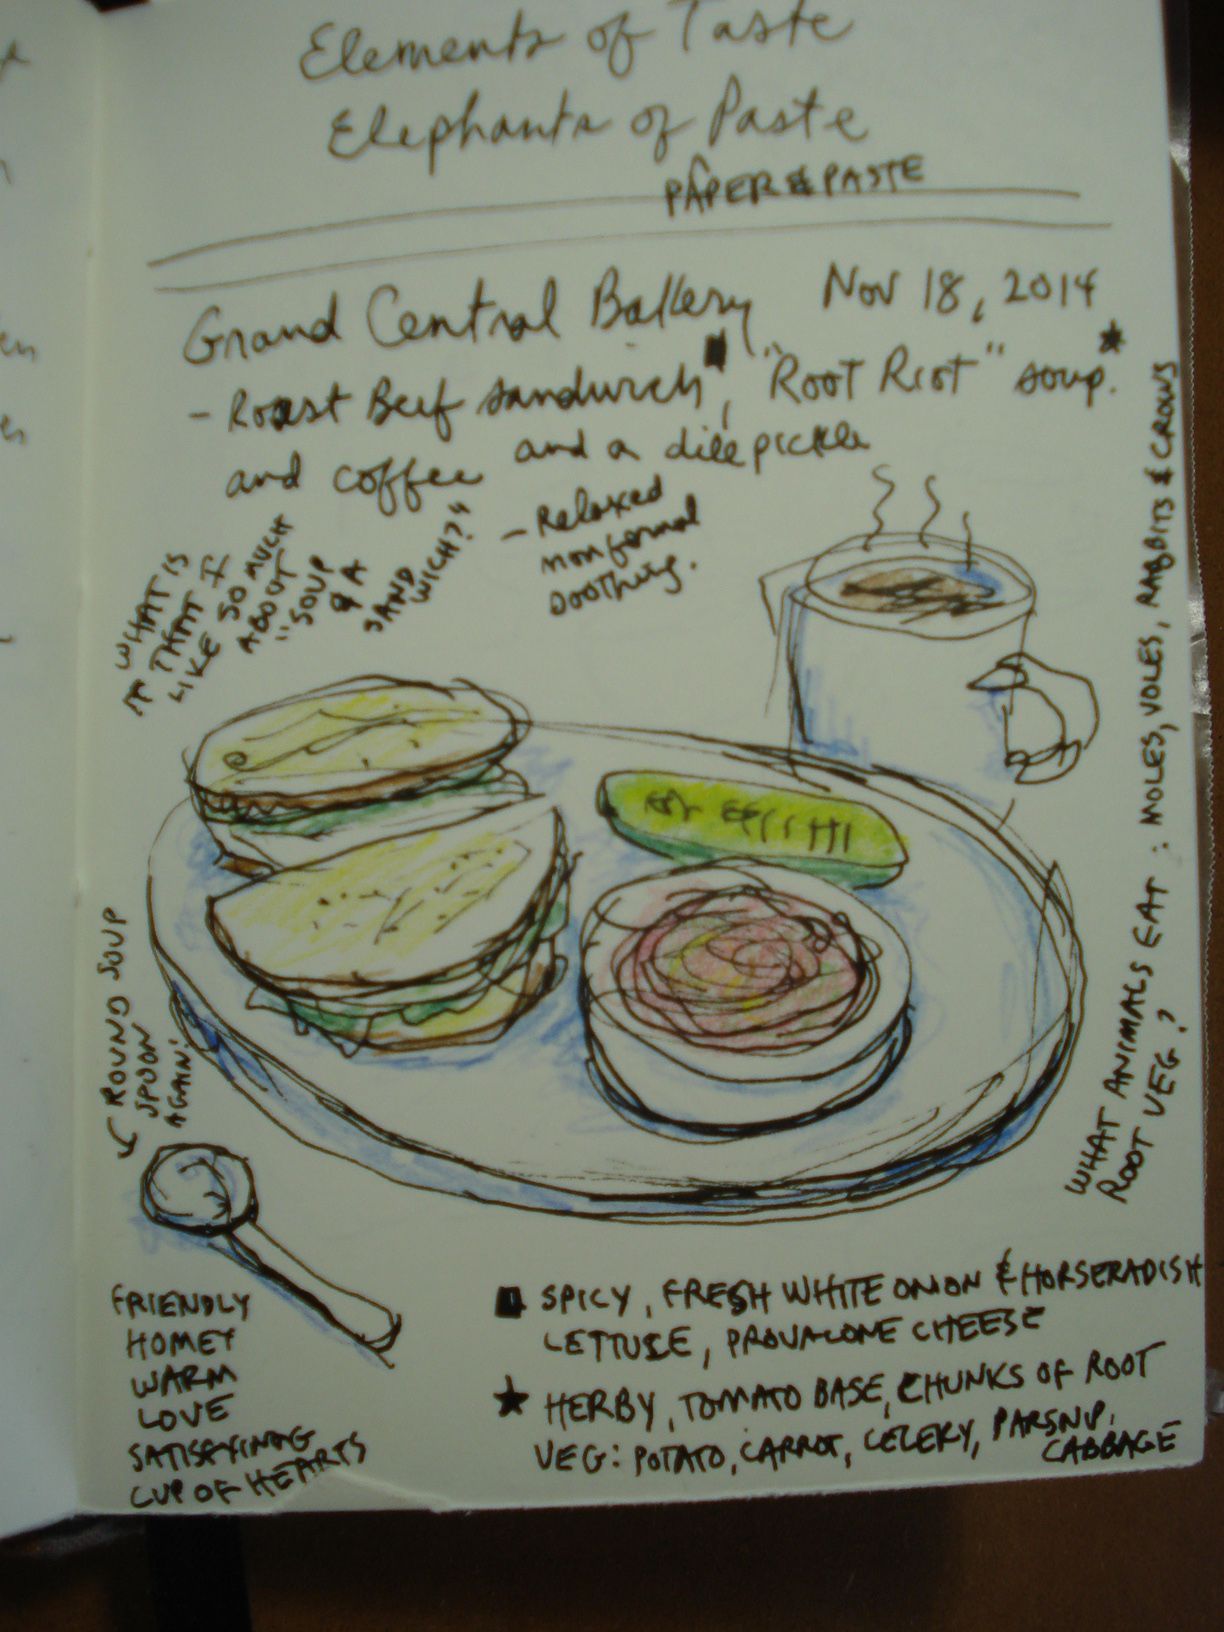 Elements of Taste
Elephants of Paste
PAPER & PASTE
Grand Central Bakery Nov 18, 2014
- Roast Beef sandwich, "Root Riot" soup.
and coffee and a dill pickle
- Relaxed
nonformal
soothing.
WHAT IS
IT THAT I
LIKE SO MUCH
ABOUT
"SOUP
& A
SAND
WICH?"
WHAT ANIMALS EAT : MOLES, VOLES, RABBITS & CROWS
ROOT VEG?
ROUND SOUP
SPOON
AGAIN!
FRIENDLY
HOMEY
WARM
LOVE
SATISFYING
CUP OF HEARTS
SPICY, FRESH WHITE ONION & HORSERADISH
LETTUSE, PROVALONE CHEESE
★ HERBY, TOMATO BASE, CHUNKS OF ROOT
VEG: POTATO, CARROT, CELERY, PARSNIP,
CABBAGE